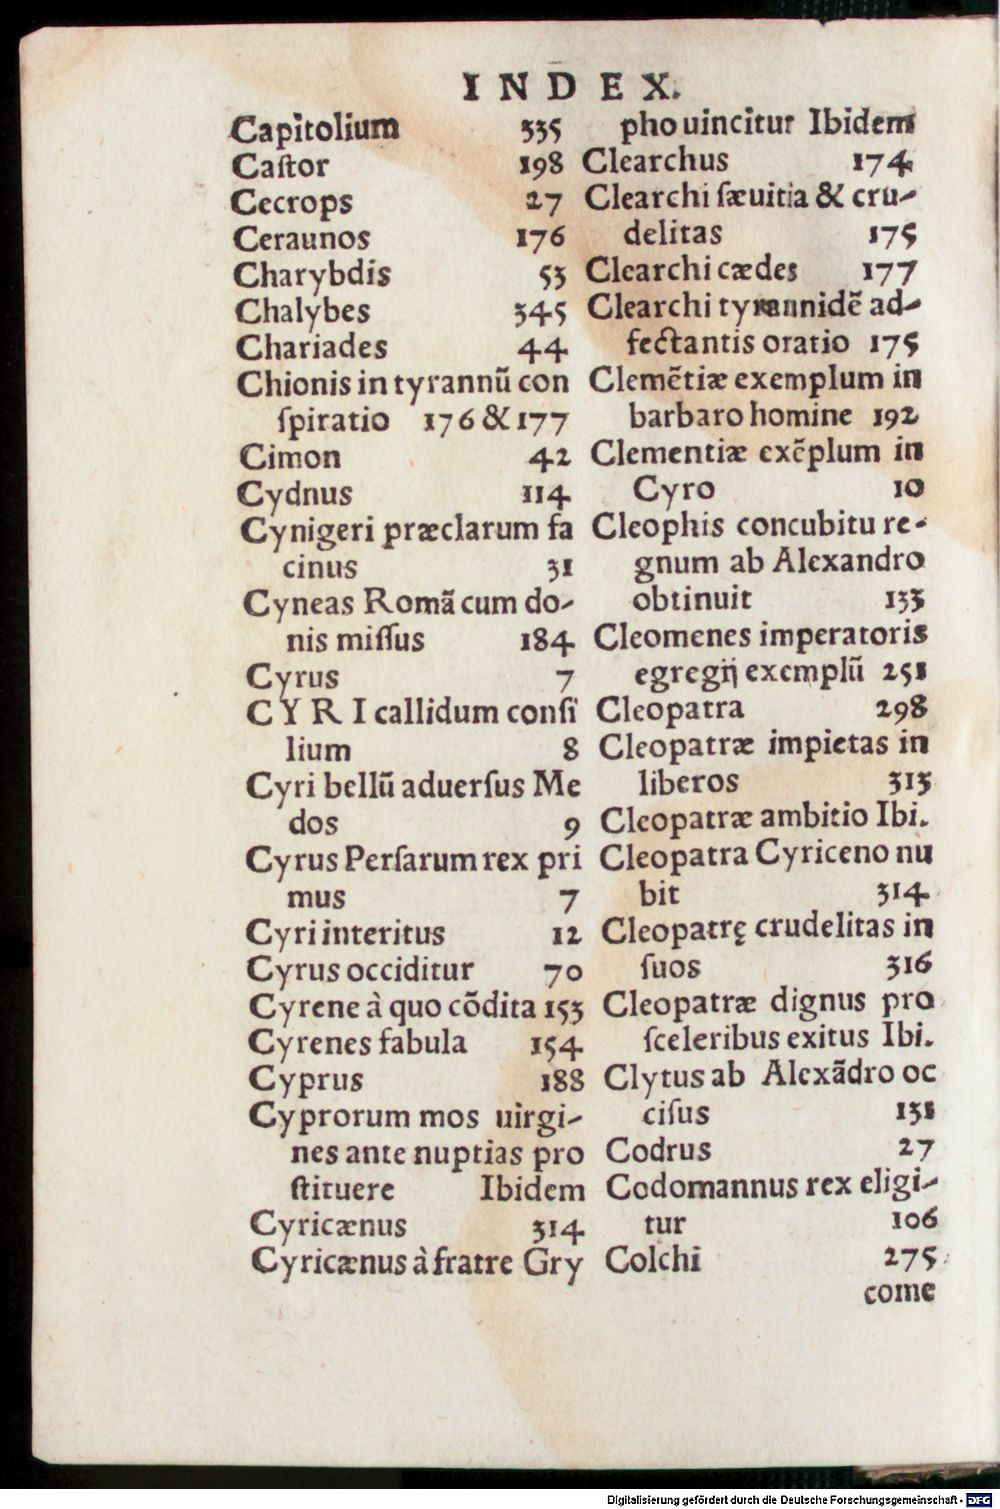 INDEX.
Capitolium 335
Caſtor 198
Cecrops 27
Ceraunos 176
Charybdis 53
Chalybes 345
Chariades 44
Chionis in tyrannū con
ſpiratio 176 & 177
Cimon 42
Cydnus 114
Cynigeri præclarum fa
cinus 31
Cyneas Romā cum do-
nis miſſus 184
Cyrus 7
CYRI callidum conſi
lium 8
Cyri bellū aduerſus Me
dos 9
Cyrus Perſarum rex pri
mus 7
Cyri interitus 12
Cyrus occiditur 70
Cyrene à quo cōdita 153
Cyrenes fabula 154
Cyprus 188
Cyprorum mos uirgi-
nes ante nuptias pro
ſtituere Ibidem
Cyricænus 314
Cyricænus à fratre Gry
pho uincitur Ibidem
Clearchus 174
Clearchi ſæuitia & cru-
delitas 175
Clearchi cædes 177
Clearchi tyrannidē ad-
fectantis oratio 175
Clemētiæ exemplum in
barbaro homine 192
Clementiæ exēplum in
Cyro 10
Cleophis concubitu re-
gnum ab Alexandro
obtinuit 133
Cleomenes imperatoris
egregij exemplū 251
Cleopatra 298
Cleopatræ impietas in
liberos 313
Cleopatræ ambitio Ibi.
Cleopatra Cyriceno nu
bit 314
Cleopatrę crudelitas in
ſuos 316
Cleopatræ dignus pro
ſceleribus exitus Ibi.
Clytus ab Alexādro oc
ciſus 131
Codrus 27
Codomannus rex eligi-
tur 106
Colchi 275
come
Digitalisierung gefördert durch die Deutsche Forschungsgemeinschaft - DFG